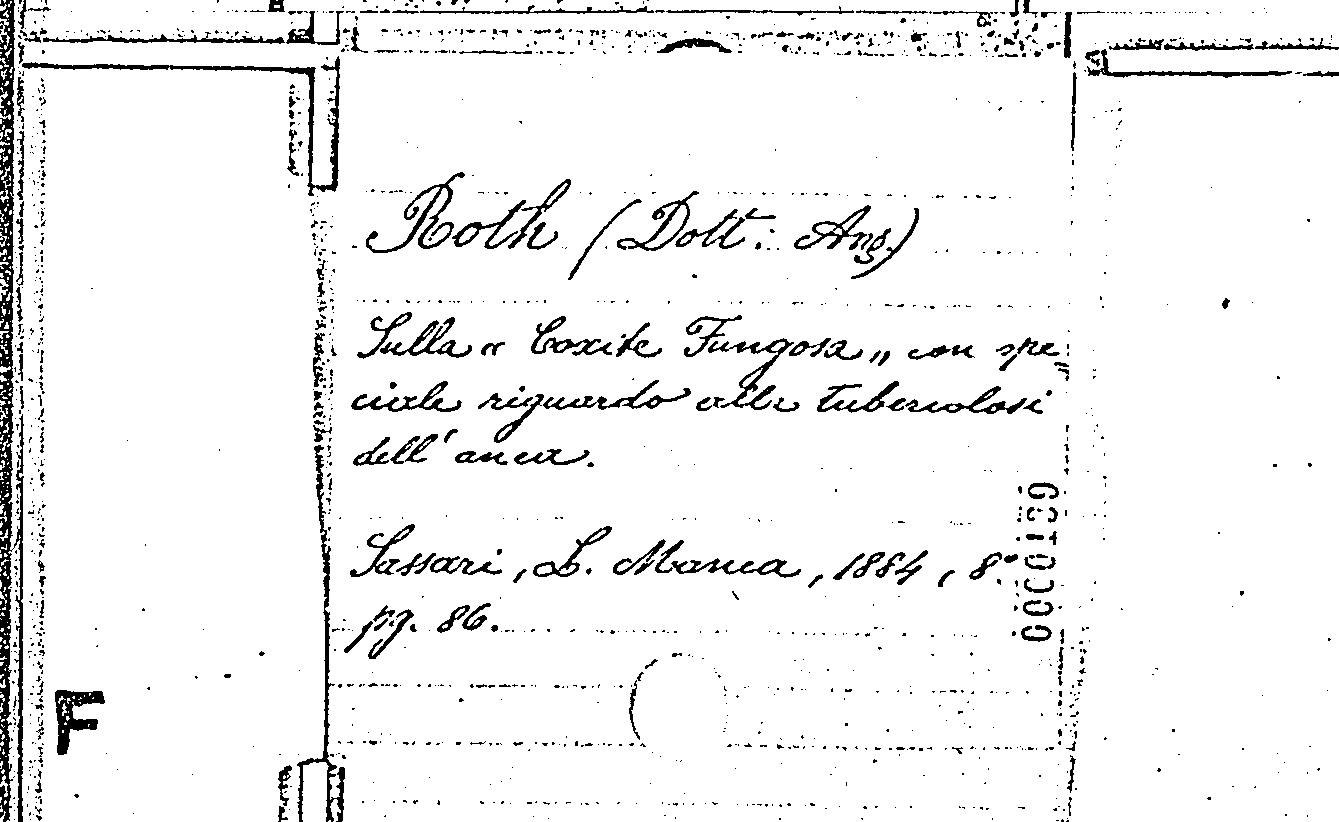 Roth (Dott: Ang.)
Sulla « Coxite Fungosa „ con spe=
ciale riguardo alla tubercolosi
dell'anca.
Sassari, L. Manca, 1884, 8.°
pg. 86.
0000189
F